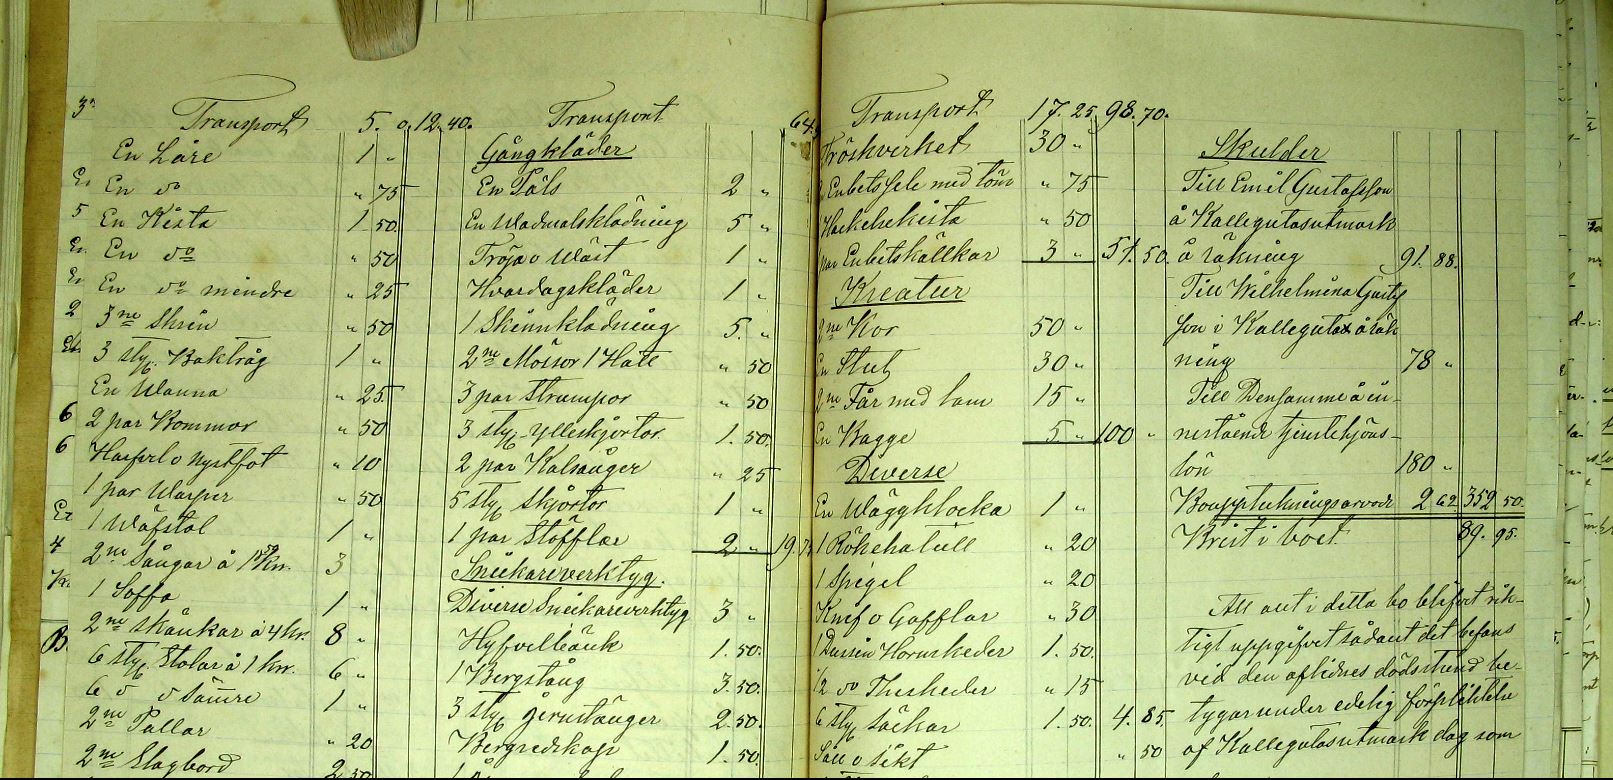 Transport 5. 0. 12. 40.
En Låre 1 "
En do " 75
En Kista 1 50
En do " 50
En do mindre " 25
3ne Skrin " 50
3 styg. Baktråg 1 "
En Wanna " 25
2 par Kommor " 50
Haspel o Nystfot " 10
1 par Warpor " 50
1 Wäfstol 1 "
2ne Sängar á 1.50 Kr. 3
1 Soffa 1 "
2ne Skänkar á 4 kr. 8 "
6 styg. Stolar á 1 kr. 6 "
6 d o Sämre 1 "
2ne Pallar " 20
2ne Slagbord 2 50
Transport 64.
Gångkläder
En Päls 2 "
En Wadmalsklädning 5 "
Tröja o Wäst 1 "
Hvardagskläder 1 "
1 Skinnklädning 5. "
2ne Mössor 1 Hatt " 50
3 par Strumpor " 50
3 styg. ylleskjortor 1. 50.
2 par Kalsånger " 25
5 styg skjortor 1 "
1 par Stöfflar 2 " 19.
Snickareverktyg.
Diverse Snickareverktyg 3 "
Hyfvelbänk 1. 50.
1 Bergstång 3. 50.
3 styg jernstänger 2. 50.
Bergredskap 1. 50.
Transport 17. 25. 98. 70.
Tröskverket 30 "
Enbetssele med töm " 75
Hackelsekista " 50
par Enbetskällkar 3 " 51. 50.
Kreatur
2ne Kor 50 "
En Stut 30 "
2ne Får med lam 15 "
En Bagge 5 " 100 "
Diverse
En Wäggklocka 1 "
1 Rökehatull " 20
1 Spegel " 20
Knif o Gafflar " 30
1 Dussin Hornskeder 1. 50.
12 do Theskeder " 15
6 styg säckar 1. 50. 4. 85
Såll o Sikt " 50
Skulder
Till Emil Gustafsson
å Kallegutasutmark
å räkning 91. 88.
Till Wilhelmina Gustaf
son i Kallegutas å räk
ning 78 "
Till Densamme å in-
nestående tjenstehjons-
lön 180 "
Bouppteckningsarvode 2 62 352 50.
Brist i boet 89. 95.
Att allt i detta bo blifvit rik-
tigt uppgifvet sådant det befans
vid den aflidnes dödsstund be-
tygar under edelig förpliktelse
af Kallegutasutmark dag som